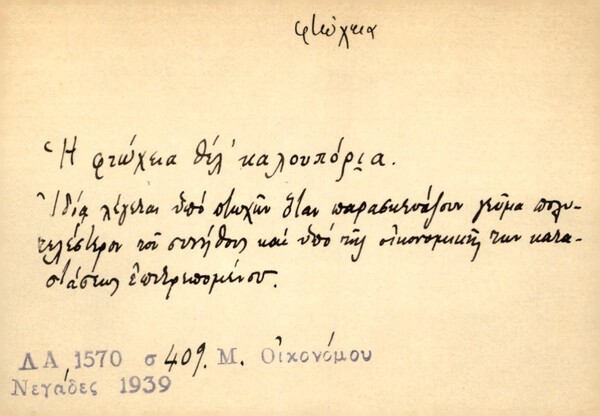 φτώχεια
Ἡ φτώχεια θέλ' καλουπόρι̯α.
Ἰδίᾳ λέγεται ὑπό πτωχῶν ὅταν παρασκευάζουν γεῦμα πολυ-
τελέστερον τοῦ συνήθους καί ὑπό τῆς οἰκονομικῆς των κατα-
στάσεως ἐπιτρεπομένου.
Λ Α, 1570 σ 409. Μ. Οἰκονόμου
Νεγάδες 1939